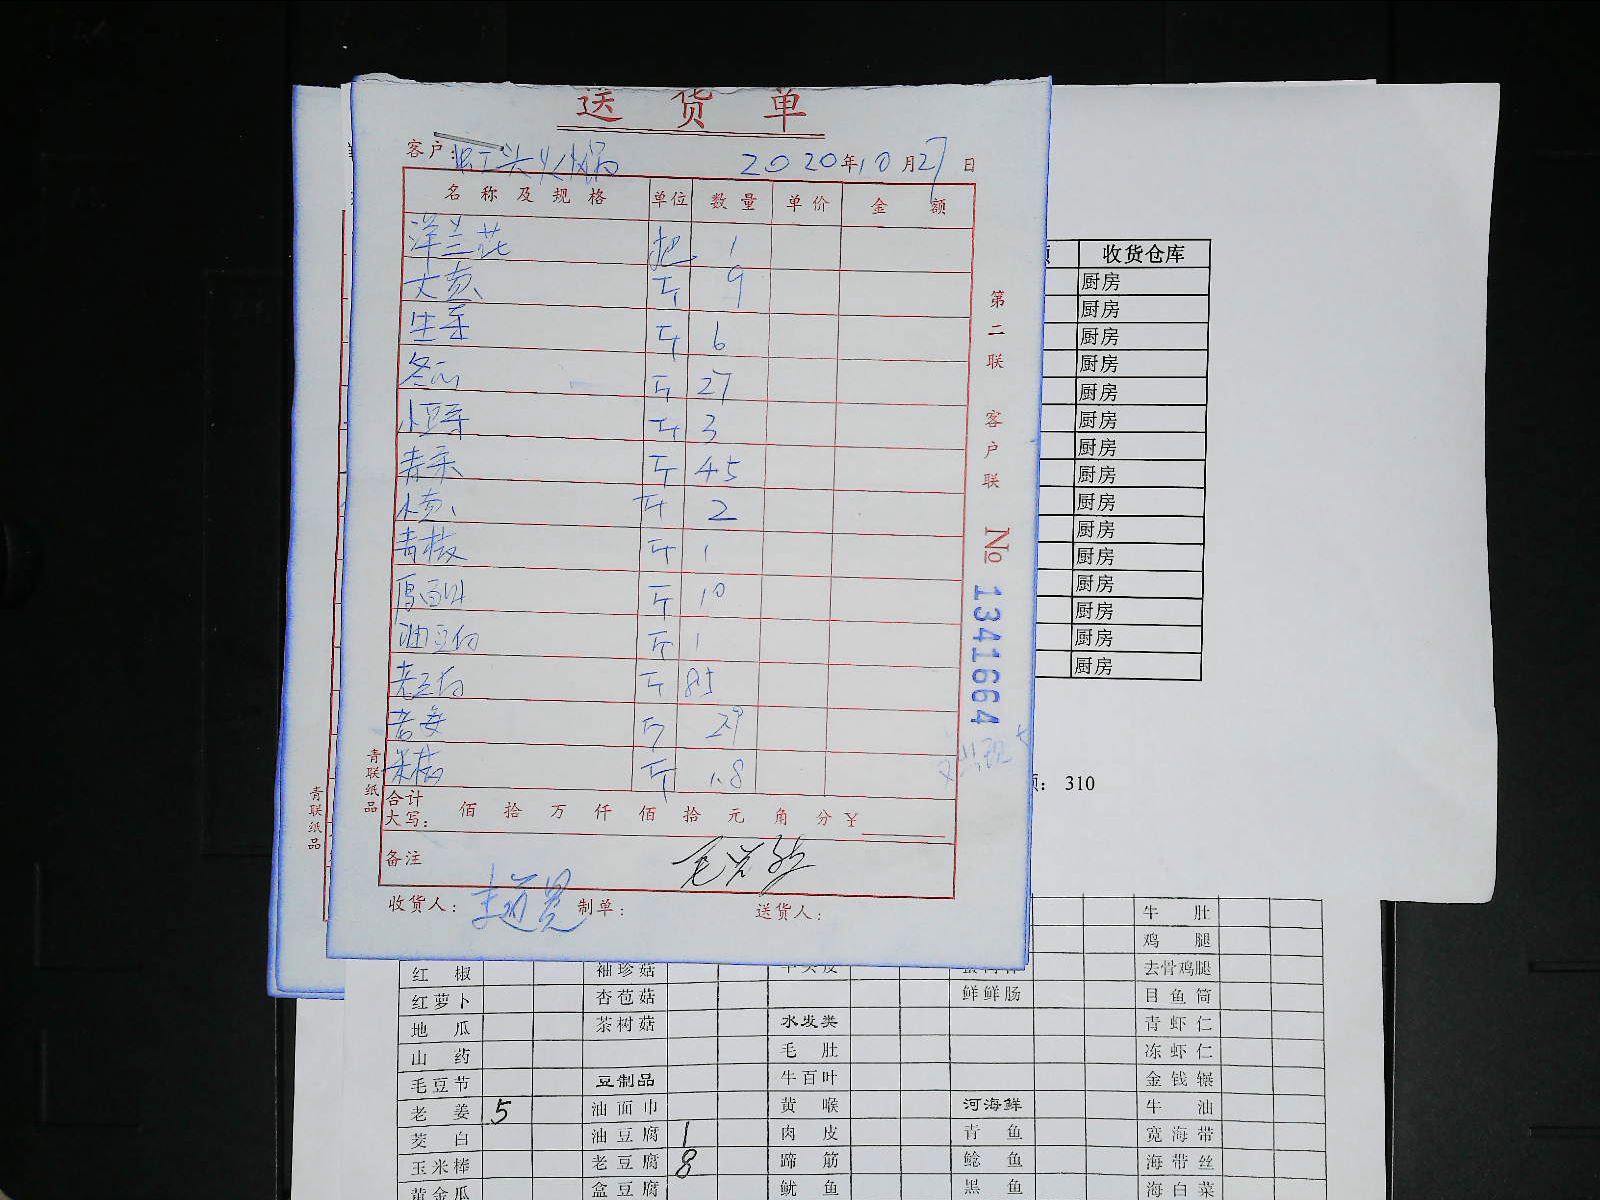 送货单
客户：
2020年10月27日
名称及规格 单位 数量 单价 金额
洋兰花 把 1
大 斤 9
生菜 斤 6
冬 斤 27
小豆芽 斤 3
青菜 斤 45
小 斤 2
青椒 斤 1
厚百叶 斤 10
油豆付 斤 1
老豆付 斤 85
斤
米椒 斤 1.8
合计
大写： 佰 拾 万 仟 佰 拾 元 角 分 ¥
备注
收货人： 制单： 送货人：
第二联 客户联 No 1341664
青联纸品
青联纸品
收货仓库
厨房
厨房
厨房
厨房
厨房
厨房
厨房
厨房
厨房
厨房
厨房
厨房
厨房
厨房
厨房
310
牛肚
鸡腿
红椒 袖珍菇 去骨鸡腿
红萝卜 杏苞菇 鲜鲜肠 目鱼筒
地瓜 茶树菇 水发类 青虾仁
山药 毛肚 冻虾仁
毛豆节 豆制品 牛百叶 金钱辗
老姜 5 油面巾 黄喉 河海鲜 牛油
茭白 油豆腐 1 肉皮 青鱼 宽海带
玉米棒 老豆腐 8 蹄筋 鲶鱼 海带丝
黄金瓜 盒豆腐 鱿鱼 黑鱼 海白菜